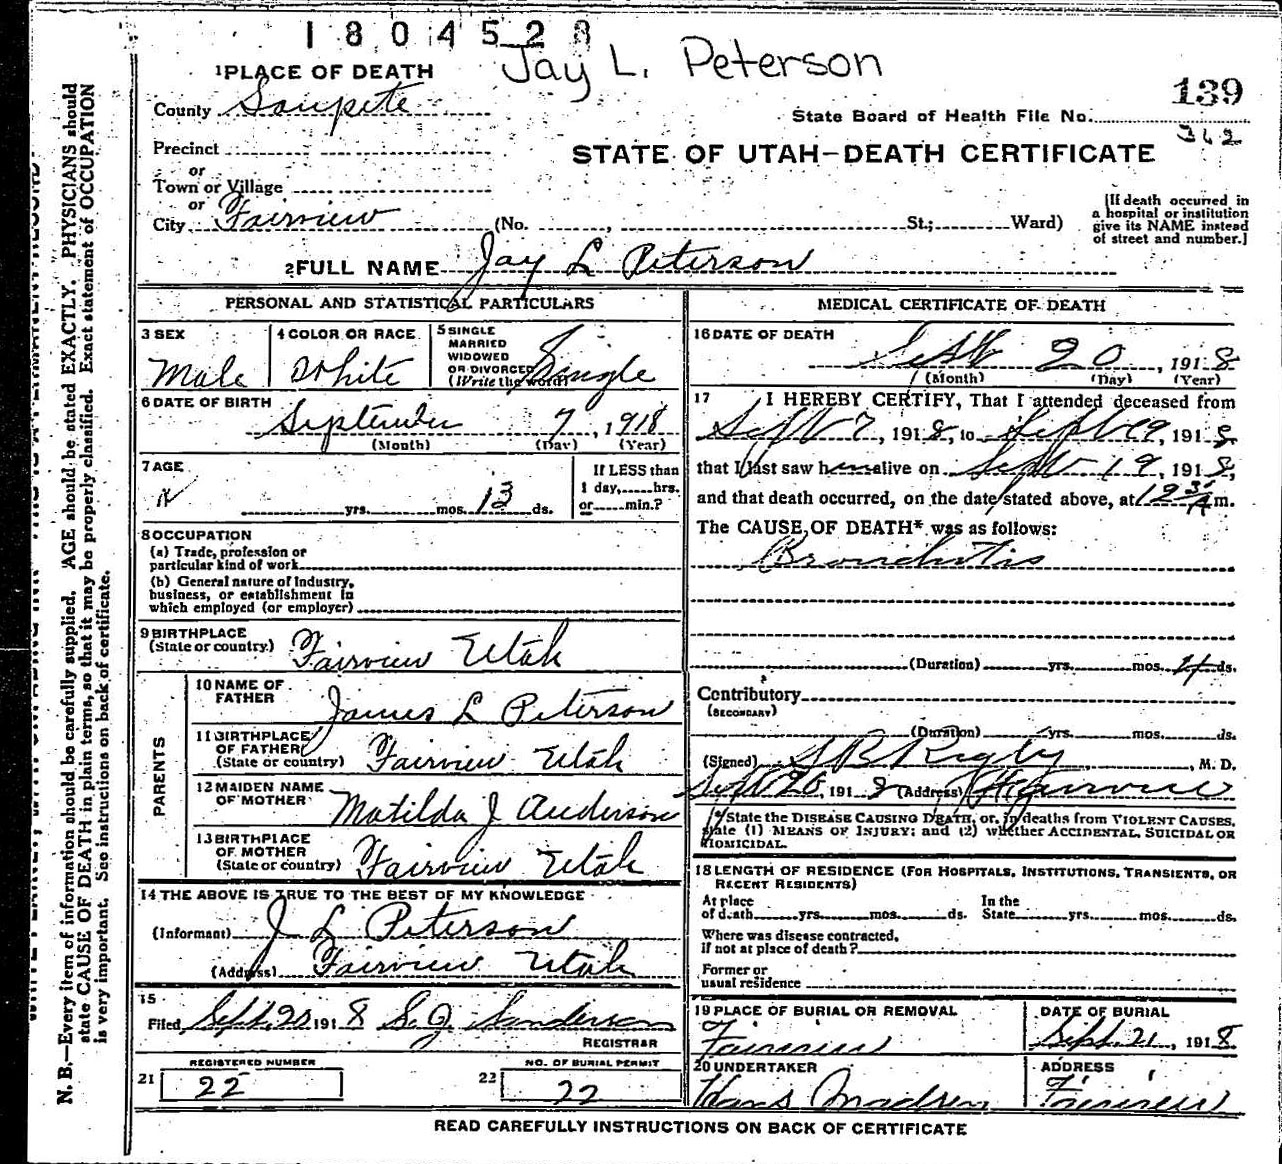 1804528
Jay L. Peterson
1 PLACE OF DEATH
139
County Sanpete
State Board of Health File No.
362
Precinct
STATE OF UTAH—DEATH CERTIFICATE
or
Town or Village
or
City Fairview (No. , St.; Ward)
[If death occurred in
a hospital or institution
give its NAME instead
of street and number.]
2 FULL NAME Jay L Peterson
PERSONAL AND STATISTICAL PARTICULARS
3 SEX
Male
4 COLOR OR RACE
White
5 SINGLE
MARRIED
WIDOWED
OR DIVORCED
(Write the word)
Single
6 DATE OF BIRTH
September 7, 1918
(Month) (Day) (Year)
7 AGE
yrs. mos. 13 ds.
If LESS than
1 day, hrs.
or min.?
8 OCCUPATION
(a) Trade, profession or
particular kind of work
(b) General nature of Industry,
business, or establishment in
which employed (or employer)
9 BIRTHPLACE
(State or country)
Fairview Utah
PARENTS
10 NAME OF
FATHER
James L Peterson
11 BIRTHPLACE
OF FATHER
(State or country)
Fairview Utah
12 MAIDEN NAME
OF MOTHER
Matilda J Anderson
13 BIRTHPLACE
OF MOTHER
(State or country)
Fairview Utah
14 THE ABOVE IS TRUE TO THE BEST OF MY KNOWLEDGE
(Informant) J L Peterson
(Address) Fairview Utah
15
Filed Sept. 20 1918 S. J. Sanderson
REGISTRAR
REGISTERED NUMBER
21 22
NO. OF BURIAL PERMIT
22 22
MEDICAL CERTIFICATE OF DEATH
16 DATE OF DEATH
Sept 20, 1918
(Month) (Day) (Year)
17 I HEREBY CERTIFY, That I attended deceased from
Sept 7, 1918, to Sept 19, 1918
that I last saw him alive on Sept 19, 1918,
and that death occurred, on the date stated above, at 12 30 A m.
The CAUSE OF DEATH* was as follows:
Bronchitis
(Duration) yrs. mos. 4 ds.
Contributory
(SECONDARY)
(Duration) yrs. mos. ds.
(Signed) Rigby, M. D.
Sept 20, 1918 (Address) Fairview
* State the DISEASE CAUSING DEATH, or, in deaths from VIOLENT CAUSES,
state (1) MEANS OF INJURY; and (2) whether ACCIDENTAL, SUICIDAL OR
HOMICIDAL.
18 LENGTH OF RESIDENCE (FOR HOSPITALS, INSTITUTIONS, TRANSIENTS, OR
RECENT RESIDENTS)
At place
of death yrs. mos. ds.
In the
State yrs. mos. ds.
Where was disease contracted,
if not at place of death?
Former or
usual residence
19 PLACE OF BURIAL OR REMOVAL
Fairview
DATE OF BURIAL
Sept. 21, 1918
20 UNDERTAKER
Hans Madsen
ADDRESS
Fairview
READ CAREFULLY INSTRUCTIONS ON BACK OF CERTIFICATE
N. B.—Every item of information should be carefully supplied. AGE should be stated EXACTLY. PHYSICIANS should
state CAUSE OF DEATH in plain terms, so that it may be properly classified. Exact statement of OCCUPATION
is very important. See instructions on back of certificate.